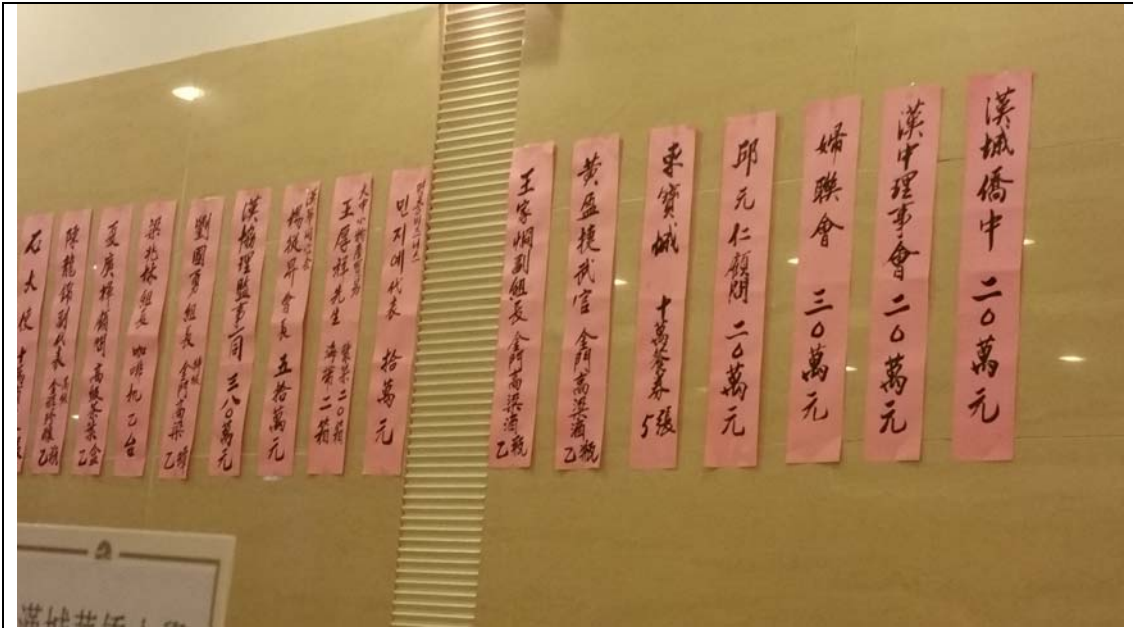 漢城僑中 二○萬元
漢中理事會 二○萬元
婦聯會 三○萬元
邱元仁顧問 二○萬元
寶城 十萬餐券5張
黃盈捷武官 金門高粱酒乙瓶
王家炯副組長 金門高粱酒乙瓶
민지예代表 拾萬元
王厚程先生 紫菜二○箱 海苔二箱
楊從昇會長 五拾萬元
漢協理監事一同 三八○萬元
劉國勇組長 金門高粱乙罈
梁兆林組長 咖啡机乙台
夏廣輝顧問 高級茶葉乙盒
陳龍錦副代表
石大使